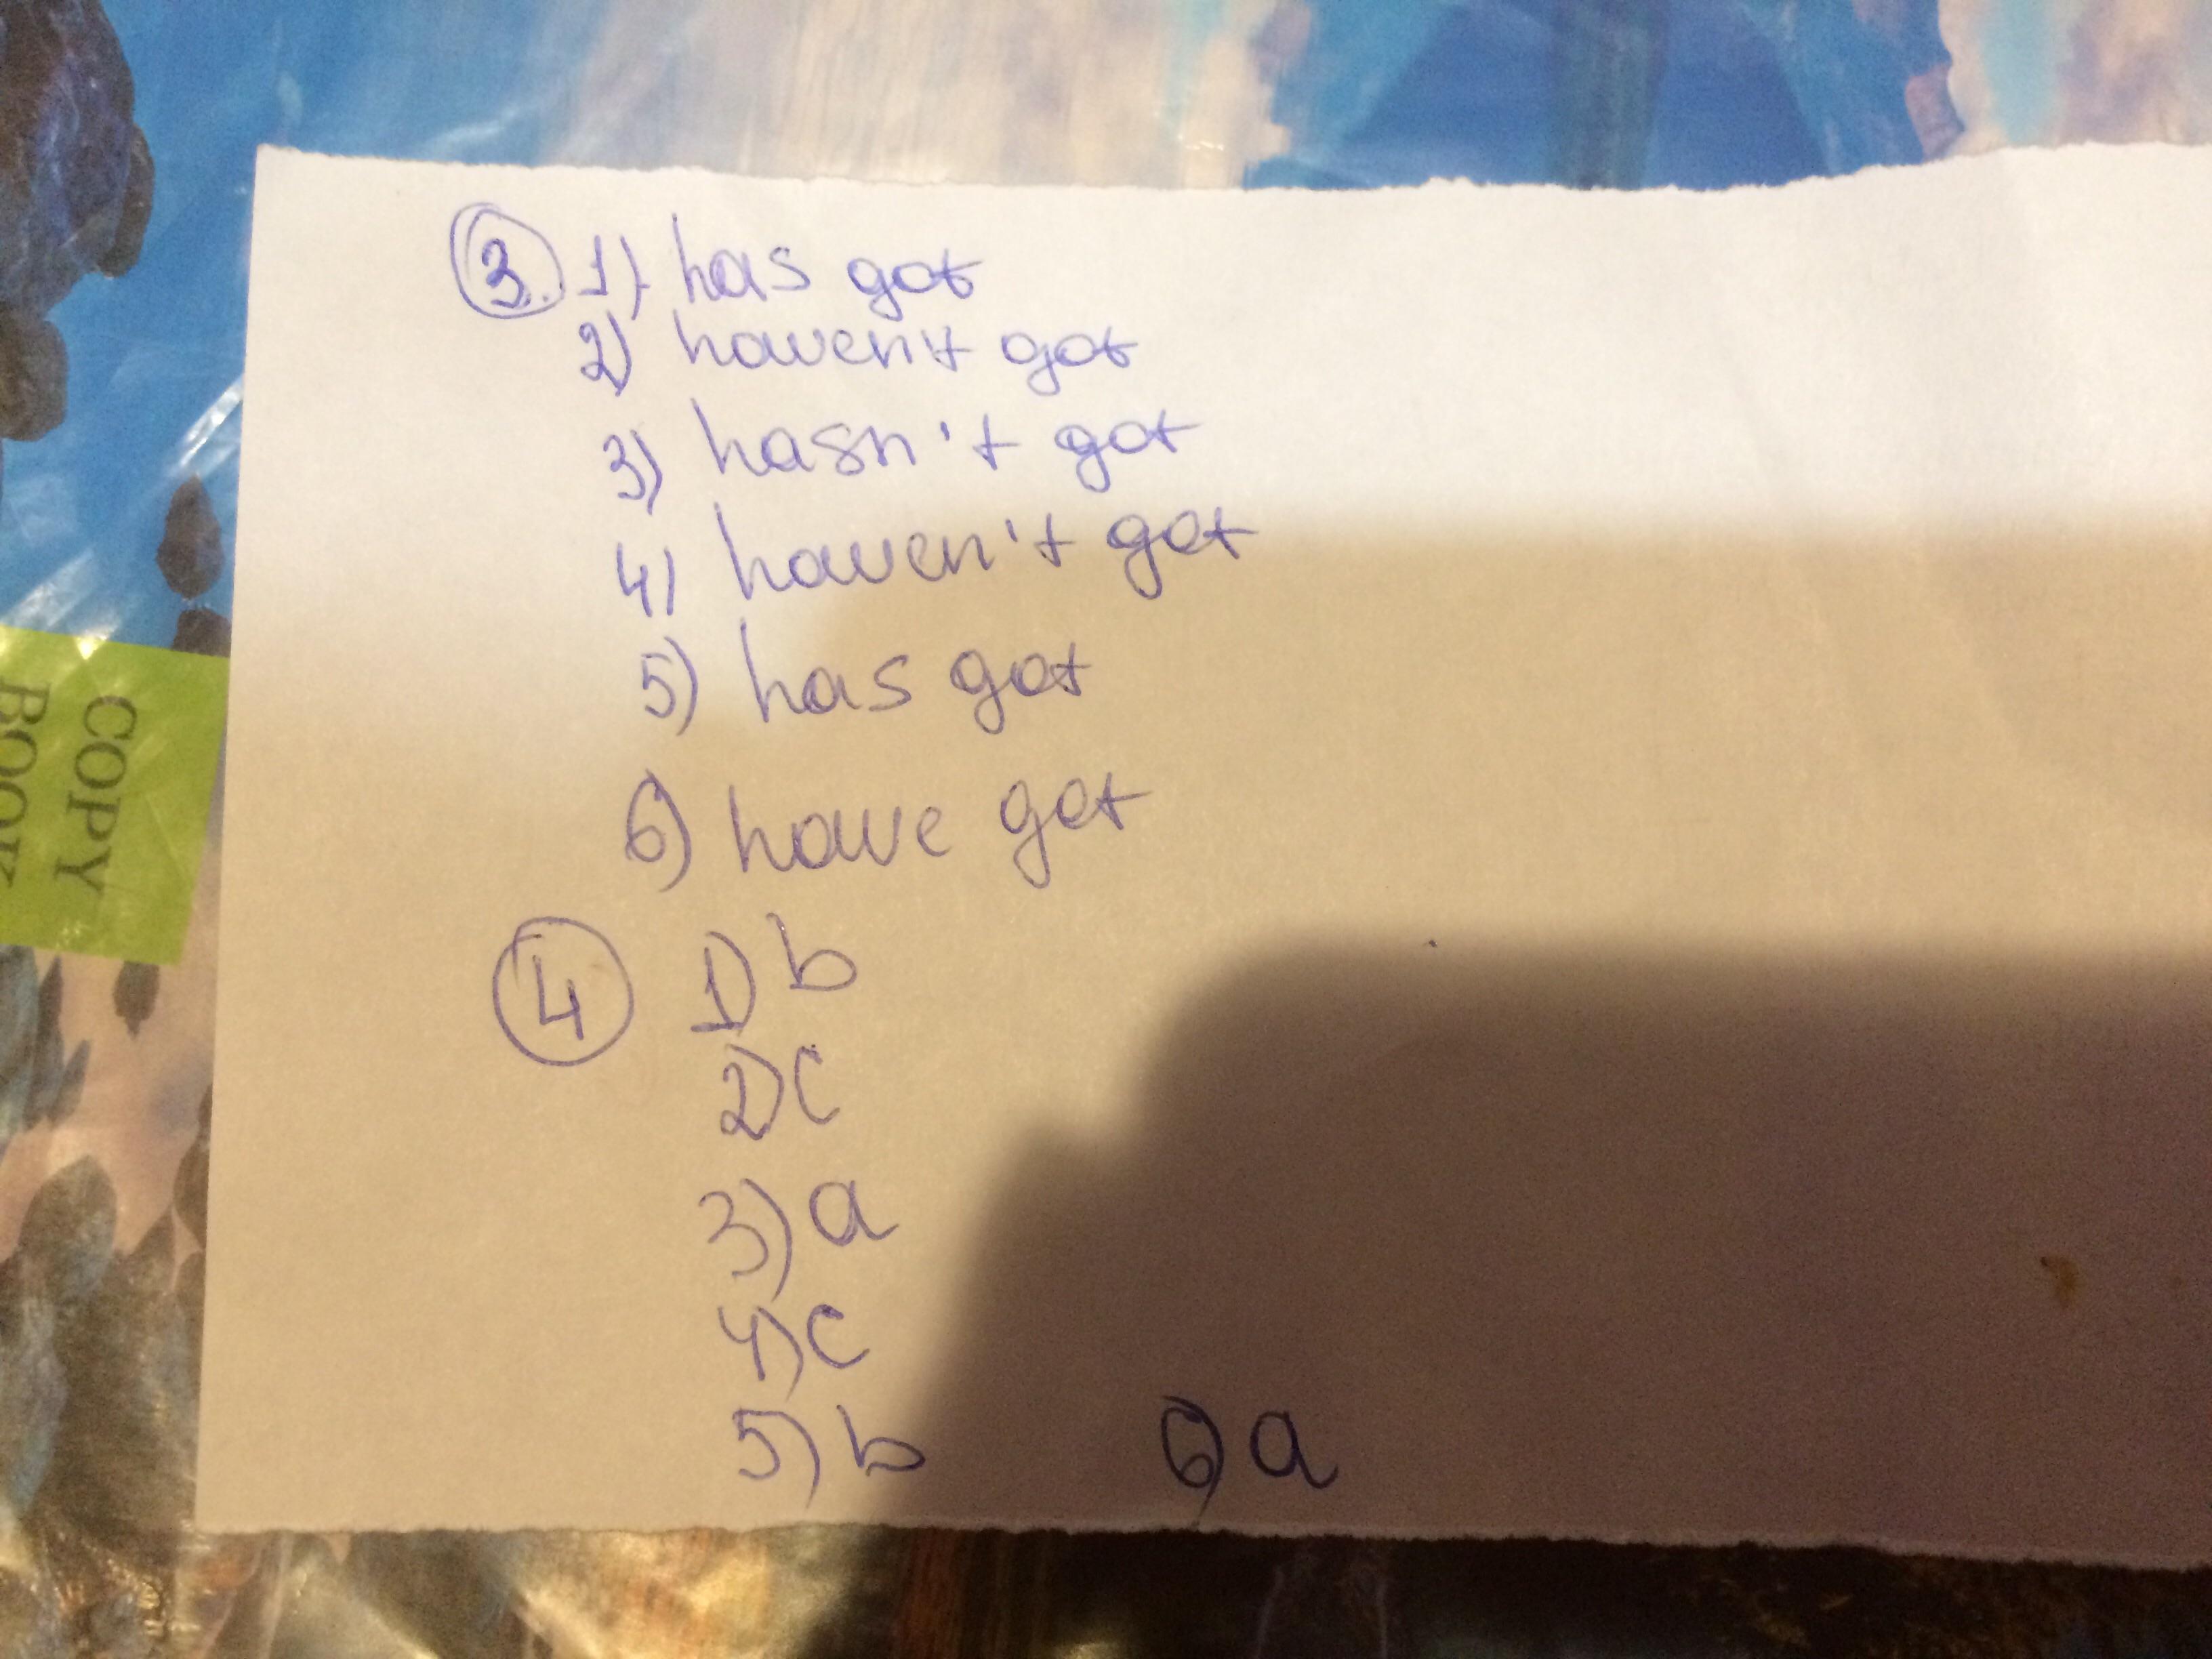 3. 1) has got
2) haven't got
3) hasn't got
4) haven't got
5) has got
6) have got
4 1) b
2) c
3) a
4) c
5) b 6) a
COPY
BOOK